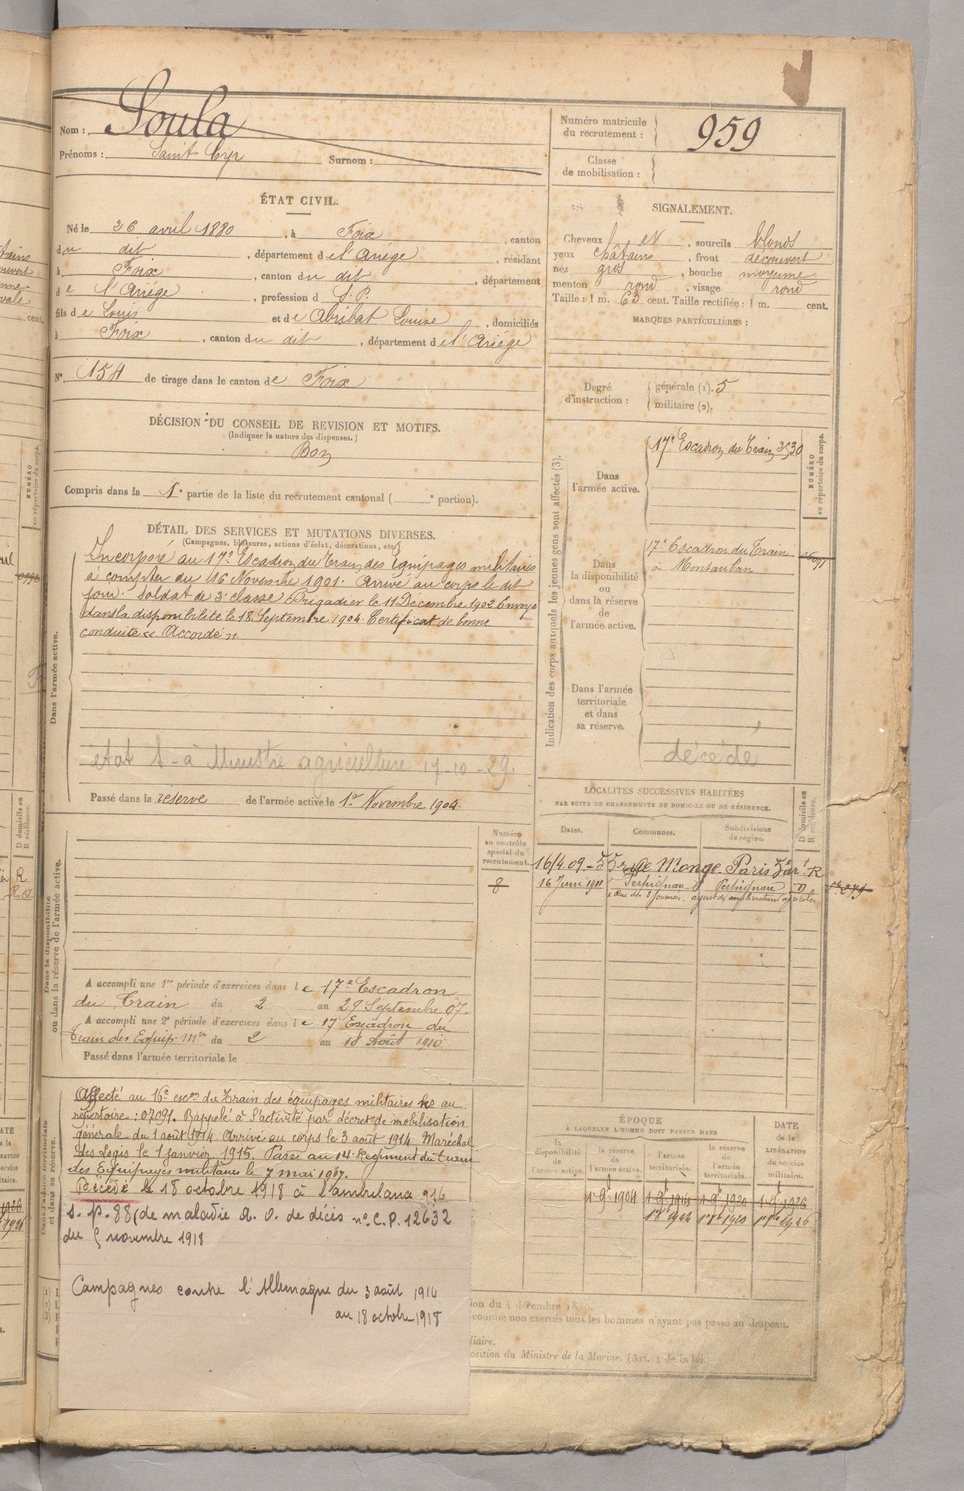 Nom : Soula
Prénoms : Saint-Cyr Surnom :
Numéro matricule du recrutement : 959
Classe de mobilisation :
ÉTAT CIVIL.
Né le 26 avril 1880, à Foix, canton
du dit, département de l'Ariège, résidant
à Foix, canton du dit, département
de l'Ariège, profession d S.P.
fils de Louis et de Abribat Louise, domiciliés
à Foix, canton du dit, département de l'Ariège
N° 154 de tirage dans le canton de Foix
DÉCISION DU CONSEIL DE REVISION ET MOTIFS.
(Indiquer la nature des dispenses.)
Bon
Compris dans la 1e partie de la liste du recrutement cantonal ( e portion).
SIGNALEMENT.
Cheveux, sourcils blonds
yeux châtains, front découvert
nez gros, bouche moyenne
menton rond, visage rond
Taille : 1 m. 63 cent. Taille rectifiée : 1 m. cent.
MARQUES PARTICULIÈRES :
Degré d'instruction : générale (1). 5
militaire (2).
DÉTAIL DES SERVICES ET MUTATIONS DIVERSES.
(Campagnes, blessures, actions d'éclat, décorations, etc.)
Dans l'armée active.
Incorporé au 17e Escadron du Train des équipages militaires
à compter du 16 Novembre 1901. Arrivé au corps le dit
jour. Soldat de 2e classe. Brigadier le 11 Décembre 1902 Envoyé
dans la disponibilité le 18 Septembre 1904. Certificat de bonne
conduite « Accordé ».
état S - à Ministre agriculture 17-10-29.
Passé dans la réserve de l'armée active le 1er Novembre 1904.
Indication des corps auxquels les jeunes gens sont affectés (3).
NUMÉRO au répertoire du corps.
Dans l'armée active.
17e Escadron du Train 3530
Dans la disponibilité ou dans la réserve de l'armée active.
17e Escadron du Train
à Montauban
Dans l'armée territoriale et dans sa réserve.
décédé
LOCALITÉS SUCCESSIVES HABITÉES
PAR SUITE DE CHANGEMENTS DE DOMICILE OU DE RÉSIDENCE.
Dates. Communes. Subdivisions de région. D. domicile ou R. résidence.
16/4.09 Monge Paris 5e art R
16 Juin 1911 Perpignan Perpignan
Numéro au contrôle spécial du recrutement.
8
Dans la disponibilité ou dans la réserve de l'armée active.
A accompli une 1re période d'exercices dans le 17e Escadron
du Train du 2 au 29 Septembre 07.
A accompli une 2e période d'exercices dans le 17 Escadron du
train des Equip. Mres du 2 au 18 Août 1910.
Passé dans l'armée territoriale le
Affecté au 16e escon du Train des équipages militaires no au
répertoire : 07091. Rappelé à l'activité par décret de mobilisation
générale du 1 août 1914 Arrivé au corps le 3 août 1914. Maréchal
des logis le 1 janvier 1915. Passé au 14e Régiment du train
des Equipages militaires le 7 mai 1917.
Décédé le 18 octobre 1918 à l'ambulance 216
s.p. 88, de maladie A. O. de décès no C.P. 12632
du 5 novembre 1918
Campagnes contre l'Allemagne du 3 août 1914
au 18 octobre 1918
ÉPOQUE
À LAQUELLE L'HOMME DOIT PASSER DANS
la disponibilité de l'armée active. la réserve de l'armée active. l'armée territoriale. la réserve de l'armée territoriale.
DATE de la LIBÉRATION du service militaire.
1-9bre 1904 1-9-1914 1-9-1920 1-9-1926
1er 8bre 1914 1er 8bre 1920 1er 8bre 1926
comme non exercés tous les hommes n'ayant pas passé au drapeau.
position du Ministre de la Marine. (Art. 4 de la loi).